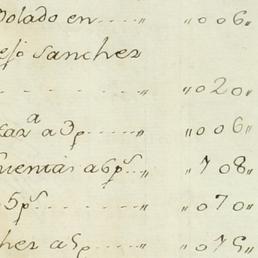 Dolado en . . . . . . " " 0 0 6 "
esɔ Sanchez
. . . . . . . . " " 0 2 0 "
caz.ª a 3p . . . . . " " 0 0 6 "
uentas a 6 p.ˢ . . . " " 7 0 8 "
5 p.ˢ . . . . . . " " 0 7 0 "
hez a 5p . . . . . " " 0 7 5 "